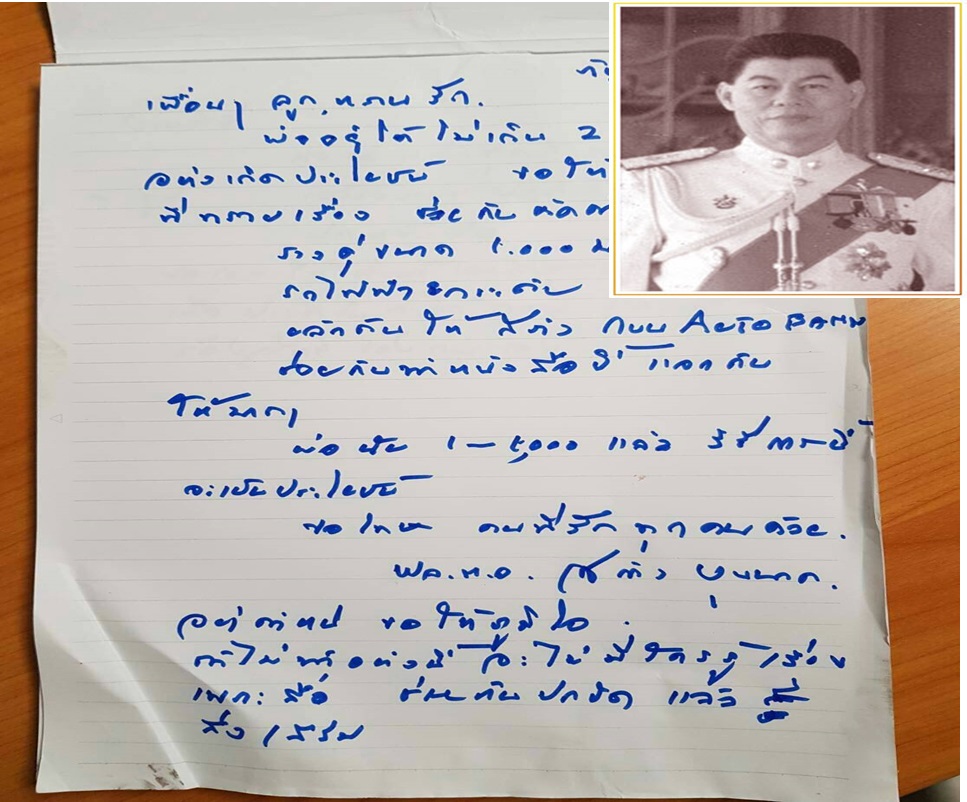 เพื่อนๆ ลูก,หลาน รัก.
พ่ออยู่ได้ ไม่เกิน 2
อย่างเกิดประโยชน์ ขอให้
ที่หลายเรื่อง ช่วยกัน
รางคู่ขนาด 1.000
รถไฟฟ้า ยกระดับ
ผลักดัน ให้ สำเร็จ AUTO BAHN
ช่วยกันทำหนังสือนี้ แจกกัน
ให้มากๆ
พ่อ 1–5,000 แล้ว วิธีการนี้
จะเป็นประโยชน์
ขอโทษ คนที่รัก ทุกคนด้วย.
พล.ท.อ. บุนนาค.
อย่าตำหนิ ขอให้ภูมิใจ.
ถ้าไม่ทำอย่างนี้ จะไม่มีใครรู้เรื่อง
เพราะสื่อ ช่วยกันปกปิด แล้ว
ส่งเสริม